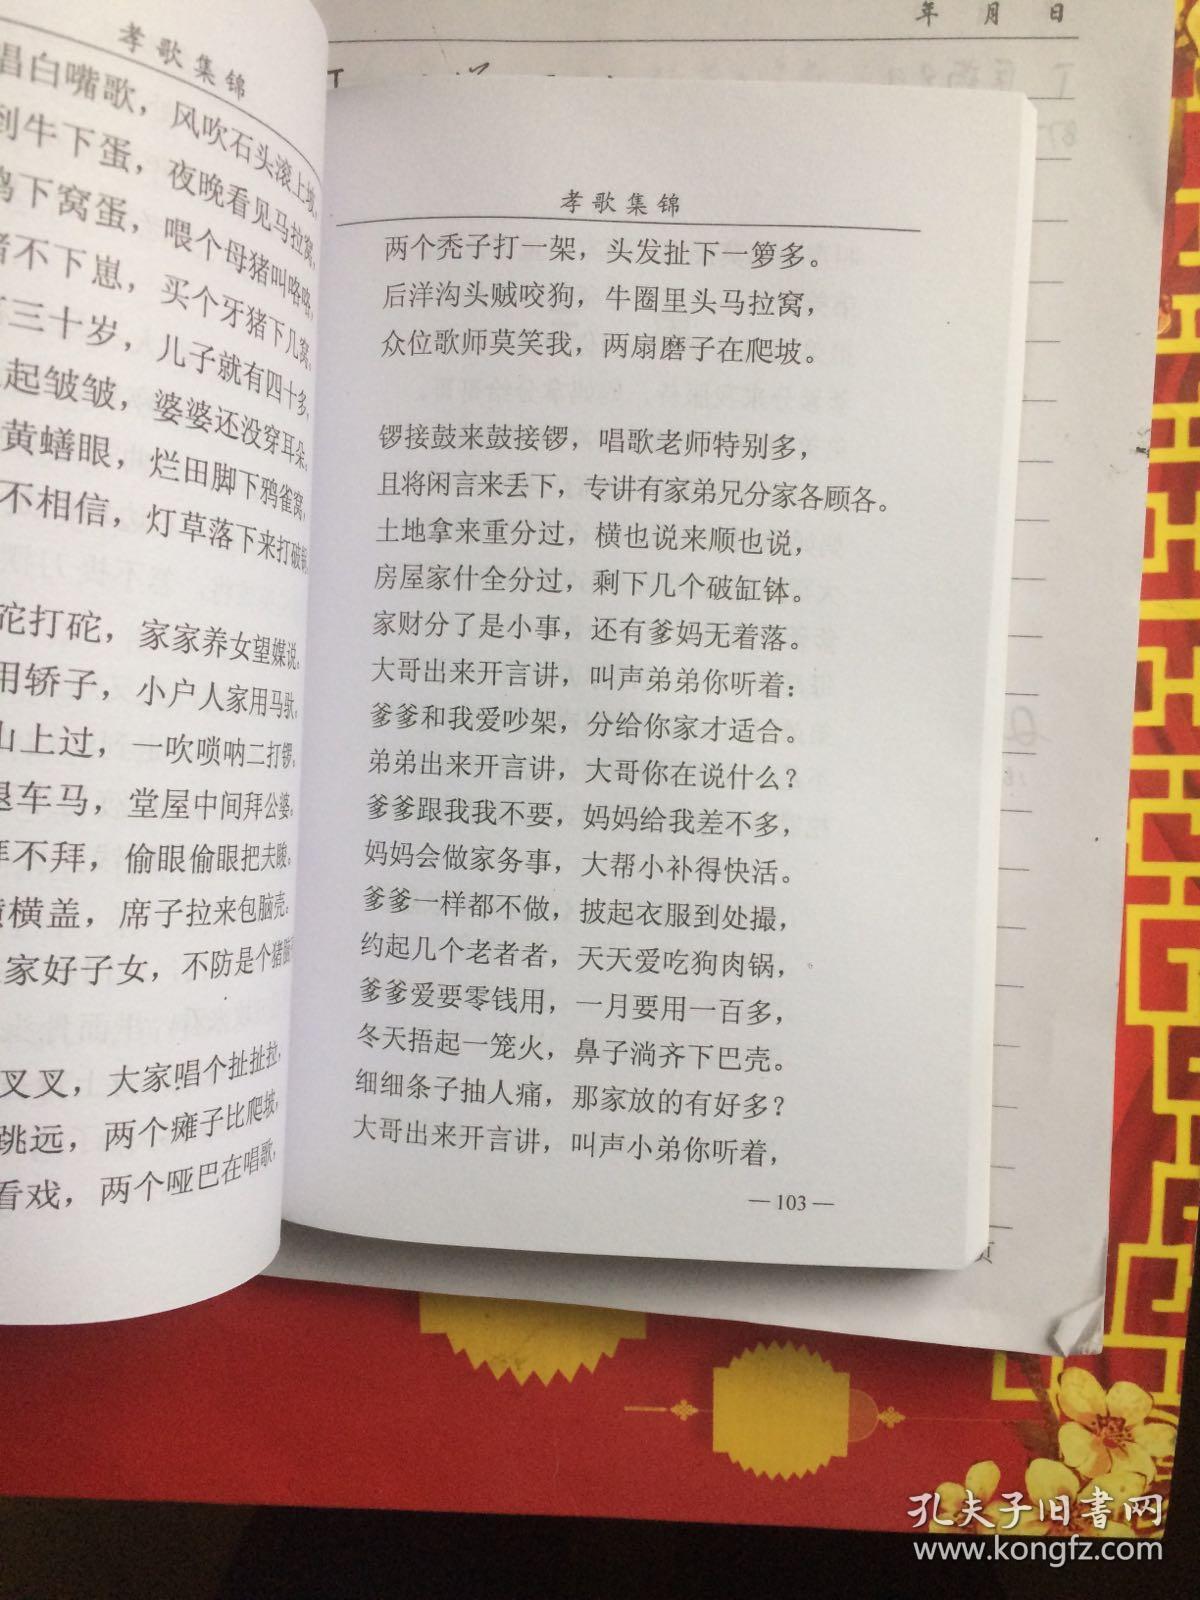 年 月 日
孝歌集锦
唱白嘴歌，风吹石头滚上坡，
到牛下蛋，夜晚看见马拉窝，
鸡下窝蛋，喂个母猪叫咯咯，
猪不下崽，买个牙猪下几窝。
三十岁，儿子就有四十多，
起皱皱，婆婆还没穿耳朵。
黄蟮眼，烂田脚下鸦雀窝，
不相信，灯草落下来打破锅。
砣打砣，家家养女望媒说。
用轿子，小户人家用马驮。
山上过，一吹唢呐二打锣。
退车马，堂屋中间拜公婆。
拜不拜，偷眼偷眼把夫睃。
横盖，席子拉来包脑壳。
家好子女，不防是个猪
叉叉，大家唱个扯扯拉，
跳远，两个瘫子比爬坡，
看戏，两个哑巴在唱歌，
孝歌集锦
两个秃子打一架，头发扯下一箩多。
后洋沟头贼咬狗，牛圈里头马拉窝，
众位歌师莫笑我，两扇磨子在爬坡。
锣接鼓来鼓接锣，唱歌老师特别多，
且将闲言来丢下，专讲有家弟兄分家各顾各。
土地拿来重分过，横也说来顺也说，
房屋家什全分过，剩下几个破缸钵。
家财分了是小事，还有爹妈无着落。
大哥出来开言讲，叫声弟弟你听着：
爹爹和我爱吵架，分给你家才适合。
弟弟出来开言讲，大哥你在说什么？
爹爹跟我我不要，妈妈给我差不多，
妈妈会做家务事，大帮小补得快活。
爹爹一样都不做，披起衣服到处撮，
约起几个老者者，天天爱吃狗肉锅，
爹爹爱要零钱用，一月要用一百多，
冬天捂起一笼火，鼻子淌齐下巴壳。
细细条子抽人痛，那家放的有好多？
大哥出来开言讲，叫声小弟你听着，
—103—
页
孔夫子旧书网
www.kongfz.com